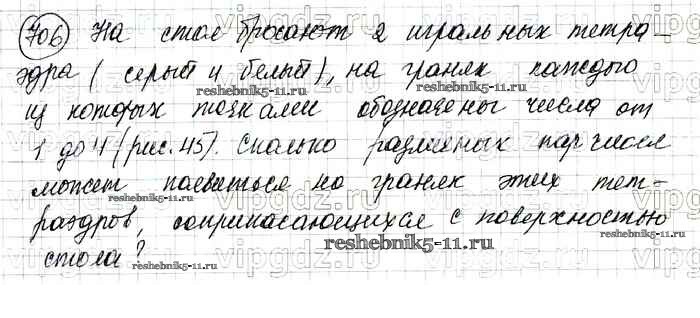 706 На стол бросают 2 игральных тетра-
эдра (серый и белый), на гранях каждого
из которых точками обозначены числа от
1 до 4 (рис. 45). Сколько различных пар чисел
может появиться на гранях этих тет-
раэдров, соприкасающихся с поверхностью
стола?
reshebnik5-11.ru
reshebnik5-11.ru
reshebnik5-11.ru
reshebnik5-11.ru
reshebnik5-11.ru
vipgdz.ru